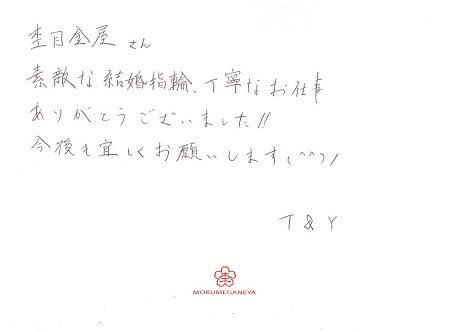 杢目金屋 さん
素敵な結婚指輪、丁寧なお仕事
ありがとうございました!!
今後も宜しくお願いします(^^)/
T & Y
MOKUMEGANEYA